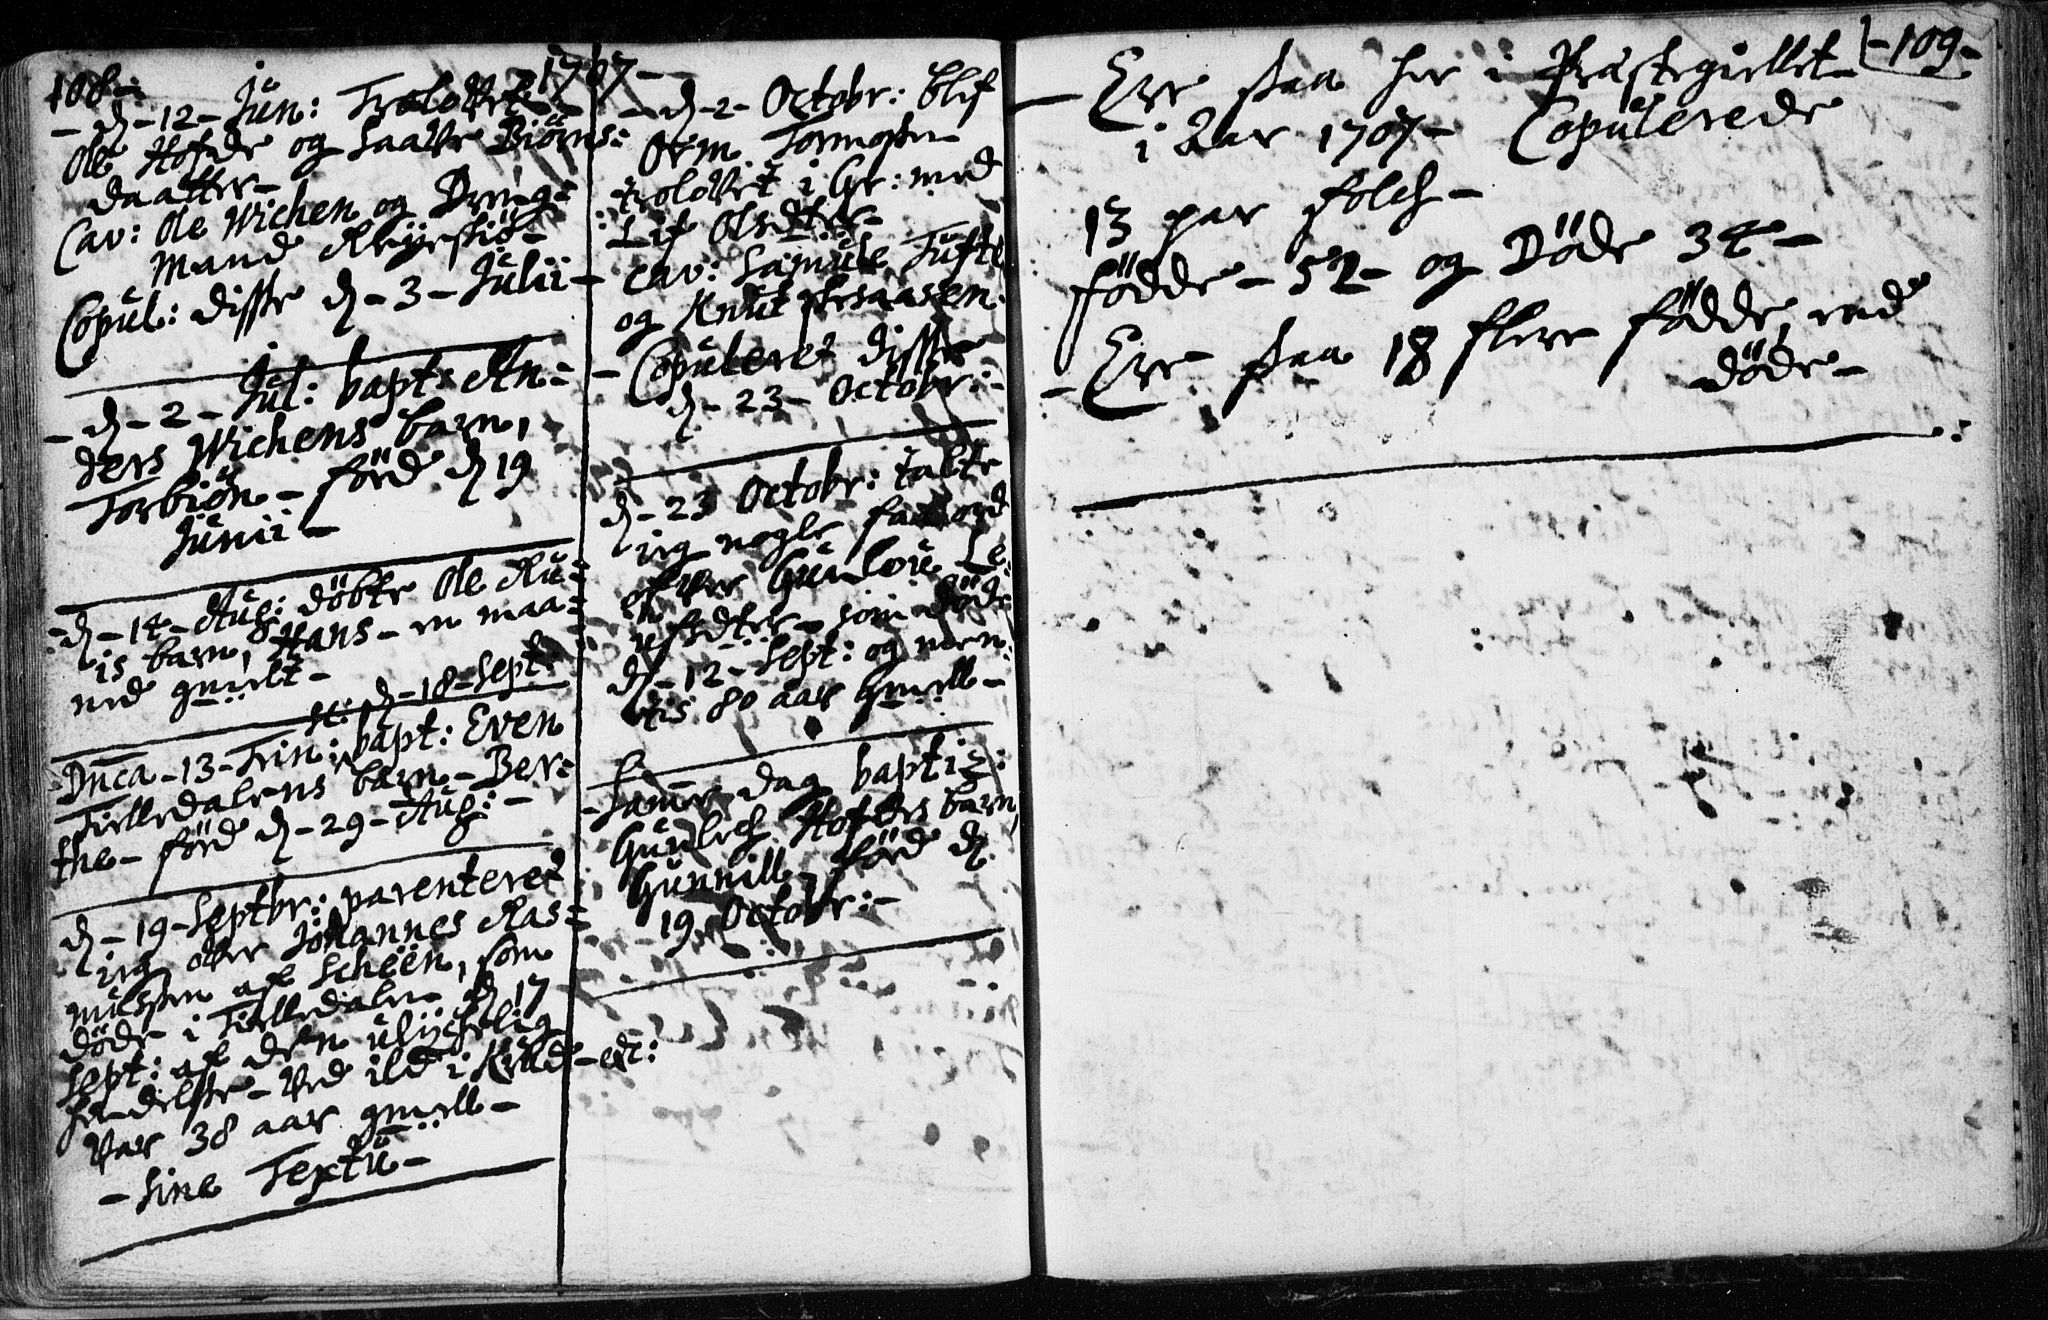 108-:
1707-
- d-12-Jun: Trolovet
Ole Hofde og Saave Biörns:
daatter-
Cav: Ole Wichen og Dreng:
Mand Røyesiö-
Copul: disse d-3-Julii-
- d-2-Jul: bapt: An-
ders Wichens barn,
Torbiön- förd d 19
Junii-
- d-14-Aug: döbte Ole Ru-
is barn, Hans- en maa-
ned gmelt-
st: d-18-Sept:
Dnca-13-Trin: bapt: Even
Tielledalens barn- Ber:
the- förd d-29-Aug:-
d-19-Septbr: parenteret
ieg over Johannes Ras=
mussen af Scheen, som
döde i Tielledalen d 17
Sept: af den ulychelig
hendelse- ved ild i Krud-etc:
Var 38 aar gmell-
- Sine Textu-
- d-2-Octobr: blef
Orm Tormosen
trolovet i Gr: med
Lif Olsdter-
Cav: Samule Tufte
og Knut
- Copuleret disse
d-23-Octobr:-
d-23 Octobr: talte
ieg nogle faa ord
efter Gunlou Le:
ufsdter- som döde
d-12-Sept: og men:
tis 80 aar gmell-
- Samme dag baptiz:
Gunlech Hofdes barn,
Gunnill- förd d.
19 Octobr:-
-109-
- Ere saa her i Præstegiellet
i Aar 1707- Copulerede
13 par folch-
födde-52- og Döde 34-
- Ere saa 18 flere födde, end
döde-